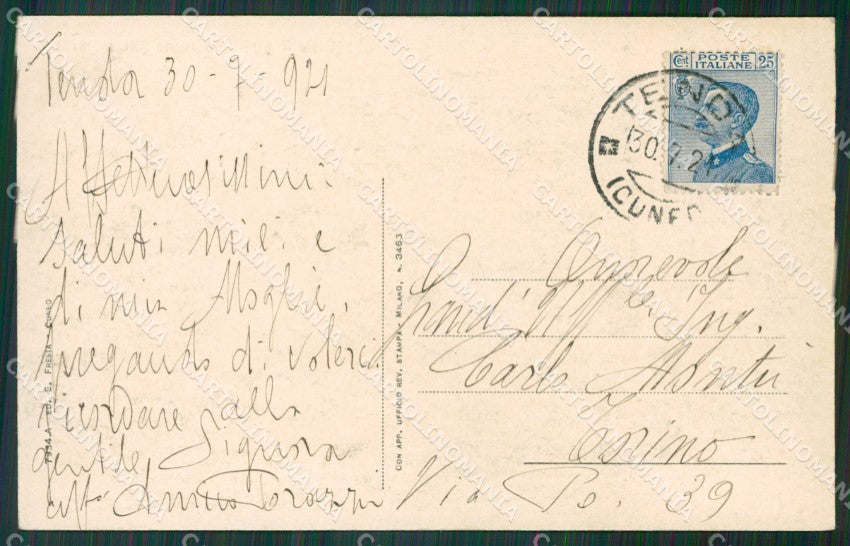 Tenda 30-7-921
Affettuosissimi
saluti miei e
di mia Moglie,
pregando di volerci
ricordare alla
gentile Signora
aff
Onorevole
Grand'Uff.le Ing.
Carlo Montù
Torino
Via Po. 39
Cent POSTE ITALIANE 25
TENDA
30.7.21
(CUNEO
7934-A - ED. E. FRESTA - CUNEO
CON APP. UFFICIO REV. STAMPA - MILANO, N. 3463
CARTOLINOMANIA